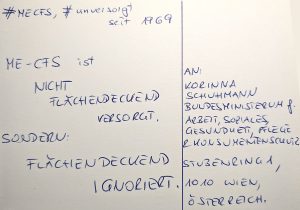 #MECFS, #unversorgt
seit 1969
ME-CFS ist
NICHT
FLÄCHENDECKEND
VERSORGT.
SONDERN:
FLÄCHENDECKEND
IGNORIERT.
AN:
KORINNA
SCHUHMANN
BUNDESMINISTERIUM f.
ARBEIT, SOZIALES,
GESUNDHEIT, PFLEGE
& KONSUMENTENSCHUTZ
STUBENRING 1,
1010 WIEN,
ÖSTERREICH.